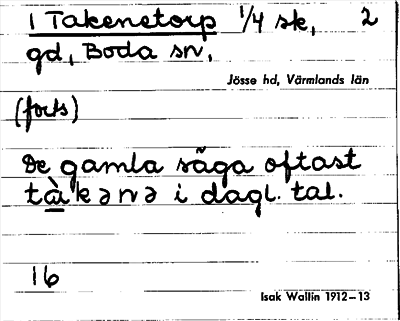 1 Takenetorp 1/4 sk, 2
gd, Boda sn,
Jösse hd, Värmlands län
(forts)
De gamla säga oftast
tàkənə i dagl. tal.
16
Isak Wallin 1912–13